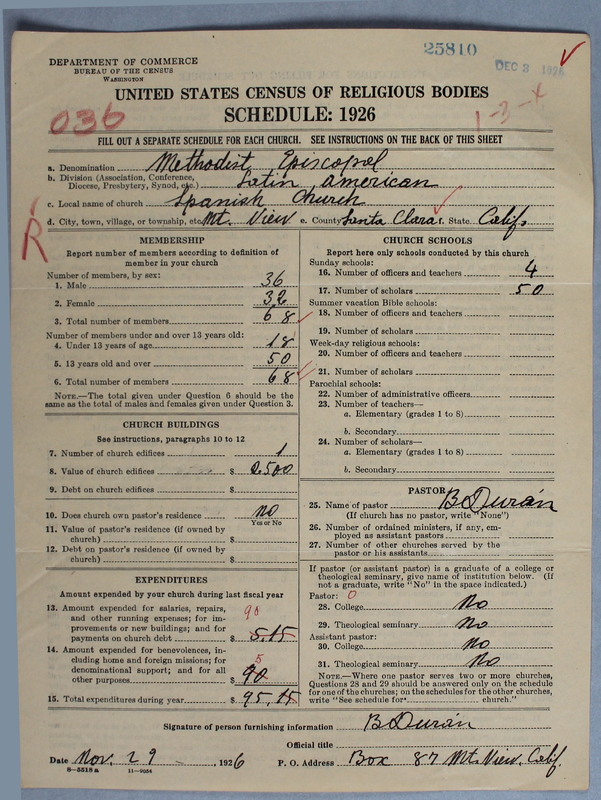 25810
DEC 3 1926
DEPARTMENT OF COMMERCE
BUREAU OF THE CENSUS
WASHINGTON
UNITED STATES CENSUS OF RELIGIOUS BODIES
SCHEDULE: 1926
036
1-3-4
FILL OUT A SEPARATE SCHEDULE FOR EACH CHURCH. SEE INSTRUCTIONS ON THE BACK OF THIS SHEET
a. Denomination Methodist Episcopal
b. Division (Association, Conference, Diocese, Presbytery, Synod, etc.) Latin American
c. Local name of church Spanish Church
d. City, town, village, or township, etc. Mt. View e. County Santa Clara f. State Calif.
R
MEMBERSHIP
Report number of members according to definition of
member in your church
Number of members, by sex:
1. Male 36
2. Female 32
3. Total number of members 68
Number of members under and over 13 years old:
4. Under 13 years of age 18
5. 13 years old and over 50
6. Total number of members 68
NOTE.—The total given under Question 6 should be the
same as the total of males and females given under Question 3.
CHURCH BUILDINGS
See instructions, paragraphs 10 to 12
7. Number of church edifices 1
8. Value of church edifices $ 2.500
9. Debt on church edifices $
10. Does church own pastor's residence no
Yes or No
11. Value of pastor's residence (if owned by
church) $
12. Debt on pastor's residence (if owned by
church) $
EXPENDITURES
Amount expended by your church during last fiscal year
13. Amount expended for salaries, repairs,
and other running expenses; for im-
provements or new buildings; and for
payments on church debt $ 5.15
90
14. Amount expended for benevolences, in-
cluding home and foreign missions; for
denominational support; and for all
other purposes $ 90
5
15. Total expenditures during year $ 95.15
CHURCH SCHOOLS
Report here only schools conducted by this church
Sunday schools:
16. Number of officers and teachers 4
17. Number of scholars 50
Summer vacation Bible schools:
18. Number of officers and teachers
19. Number of scholars
Week-day religious schools:
20. Number of officers and teachers
21. Number of scholars
Parochial schools:
22. Number of administrative officers
23. Number of teachers—
a. Elementary (grades 1 to 8)
b. Secondary
24. Number of scholars—
a. Elementary (grades 1 to 8)
b. Secondary
PASTOR
25. Name of pastor B Durán
(If church has no pastor, write "None")
26. Number of ordained ministers, if any, em-
ployed as assistant pastors
27. Number of other churches served by the
pastor or his assistants
If pastor (or assistant pastor) is a graduate of a college or
theological seminary, give name of institution below. (If
not a graduate, write "No" in the space indicated.)
Pastor: 0
28. College no
29. Theological seminary no
Assistant pastor:
30. College no
31. Theological seminary no
NOTE.—Where one pastor serves two or more churches,
Questions 28 and 29 should be answered only on the schedule
for one of the churches; on the schedules for the other churches,
write "See schedule for church."
Signature of person furnishing information B Durán
Official title
Date Nov. 29, 1926 P. O. Address Box 87 Mt. View, Calif.
8—5518 a 11—9034